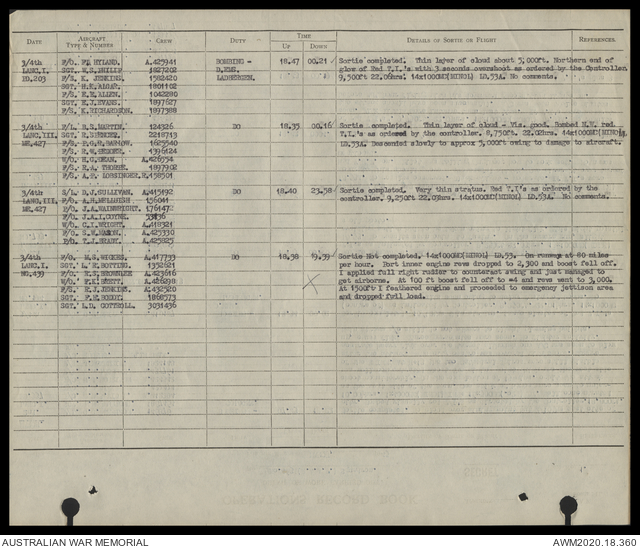 DATE AIRCRAFT TYPE & NUMBER CREW DUTY TIME UP DOWN DETAILS OF SORTIE OR FLIGHT REFERENCES.
3/4th F/O. HYLAND. A.425941 BOMBING - 18.47 00.21 Sortie completed. Thin layer of cloud about 5,000ft. Northern end of
LANC.I. SGT. W.S. PHILIP 1827202 D.EMS. glow of Red T.I's with 3 seconds overshoot as ordered by the Controller
ED.203 F/S. K. JENKINS. 1582420 LADBERGEN. 9,500ft 22.06hrs. 14x1000MD(MINOL) LD.53A. No comments.
SGT. H.E. ALGAR. 1801162
F/S. E.E. ALLEN. 1042280
SGT. E.J. EVANS. 1897627
F/S. K. RICHARDSON. 1897388
3/4th F/L. MARTIN. 124326 DO 18.35 00.16 Sortie completed. Thin layer of cloud - Vis. good. Bombed N.W. red
LANC.III. SGT. 2218713 T.I.'s as ordered by the controller. 8,750ft. 22.02hrs. 14x1000MD(MINOL)
F/S. BARLOW. 1625540 LD.53A. Descended slowly to approx 5,000ft owing to damage to aircraft.
F/S. 1396124
W/O. H.G. A.426554
F/S. R.A. THORPE. 1897902
F/S. 458501
3/4th S/L. D.J. SULLIVAN. A.415192 DO 18.40 23.58 Sortie completed. Very thin stratus. Red T.I's as ordered by the
LANC.III. F/O. A.H. 156041 controller. 9,250ft 22.03hrs. 14x1000MD(MINOL) LD.53A. No comments.
ME.427 F/O. J.A. WAINWRIGHT. 176147
F/O. J.A.I. COYNE.
W/O. C.I. WRIGHT. A.418321
F/O. MASON. A.425330
F/O. T.J. BRADY. A.425825
3/4th F/O. M.S. WICKES. A.417733 DO 18.38 Sortie Not completed. 14x1000MD(MINOL) LD.53. On runway at 80 miles
LANC.I. SGT. L.E. BOTTING. 1352521 per hour. Port inner engine revs dropped to 2,300 and boost fell off.
NG.439 F/O. BROWNLEE A.423616 I applied full right rudder to counteract swing and just managed to
W/O. P.K. A.426298 get airborne. At 100 ft boost fell off to +4 and revs went to 3,000.
F/S. R.J. JENKINS A.432520 At 1500ft I feathered engine and proceeded to emergency jettison area
SGT. F.E. 1868573 and dropped full load.
SGT. L.D. COTTRELL 3031436
AUSTRALIAN WAR MEMORIAL AWM2020.18.360